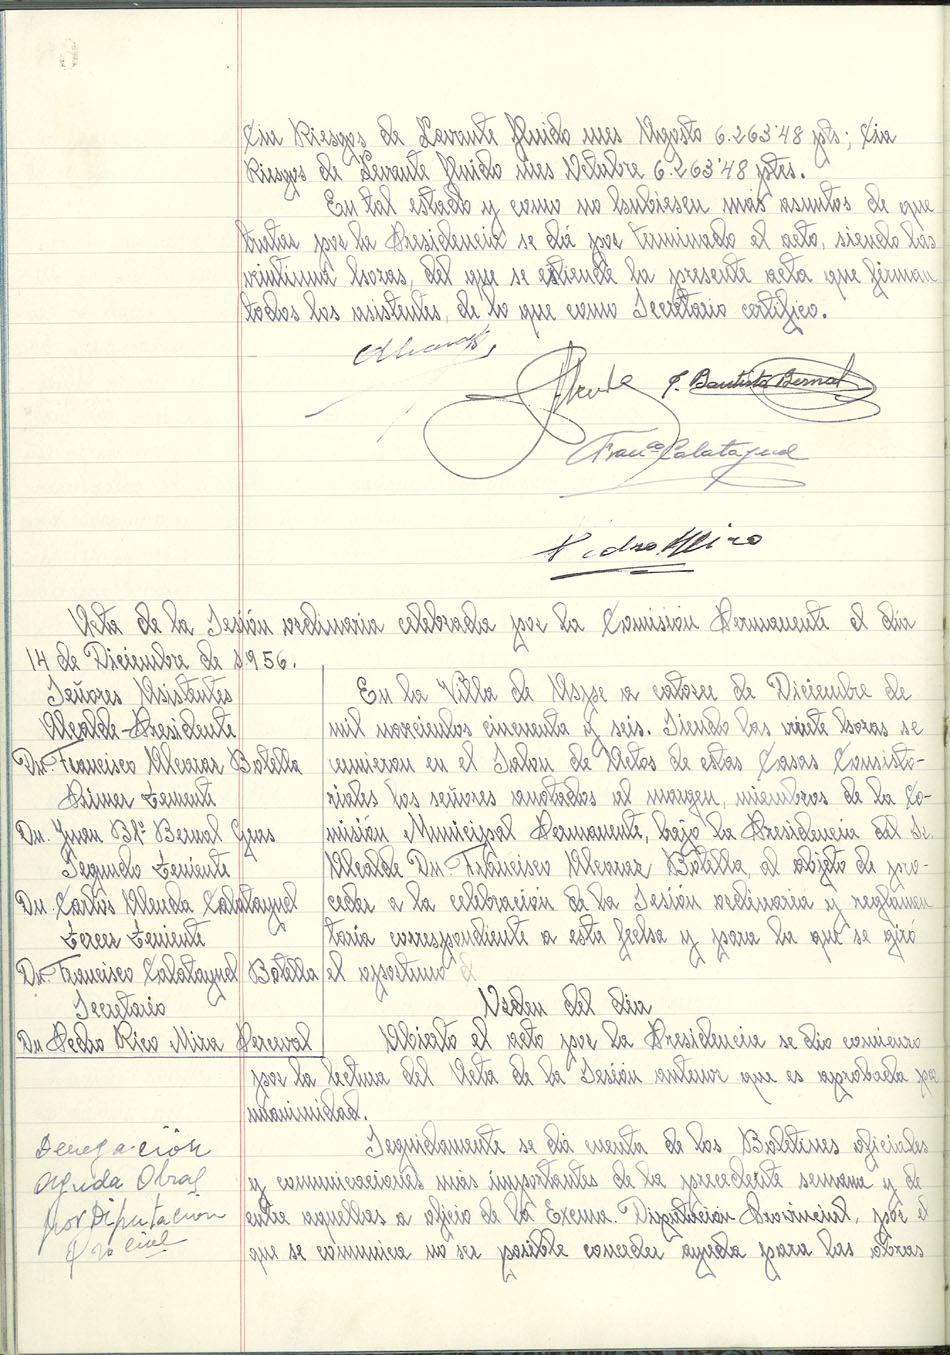 Cia Riegos de Levante fluido mes Agosto 6.263'48 pts; Cia
Riegos de Levante fluido mes Octubre 6.263'48 ptes.
En tal estado y como no hubiesen más asuntos de que
tratar por la Presidencia se dá por terminado el acto, siendo las
veintiuna horas, del que se extiende la presente acta que firman
todos los asistentes, de lo que como Secretario certifico.
J. Bautista Bernal
Franco Calatayud
Acta de la Sesión ordinaria celebrada por la Comisión Permanente el día
14 de Diciembre de 1956.
Señores Asistentes
Alcalde-Presidente
Dn. Francisco Alcaraz Botella
Primer teniente
Dn. Juan Bta. Bernal Gras
Segundo teniente
Dn. Carlos Alenda Calatayud
tercer teniente
Dn. Francisco Calatayud Botella
Secretario
Dn Pedro Rico Mira Perceval
En la Villa de Aspe a catorce de Diciembre de
mil novecientos cincuenta y seis. Siendo las veinte horas se
reunieron en el Salon de Actos de estas Casas Consisto-
riales los señores anotados al margen, miembros de la Co-
misión Municipal Permanente, bajo la Presidencia del Sr.
Alcalde Dn. Francisco Alcaraz Botella, al objeto de pro-
ceder a la celebración de la Sesión ordinaria y reglamen
taria correspondiente a esta fecha y para la que se giró
el oportuno
Orden del dia
Abierto el acto por la Presidencia se dio comienzo
por la lectura del Acta de la Sesión anterior que es aprobada por
unanimidad.
Denegación
ayuda Obras
por Diputacion
Provincial
Seguidamente se dá cuenta de los Boletines oficiales
y comunicaciones más importantes de la precedente semana y de
entre aquellas a oficio de la Excma. Diputación Provincial, por el
que se comunica no ser posible conceder ayuda para las obras